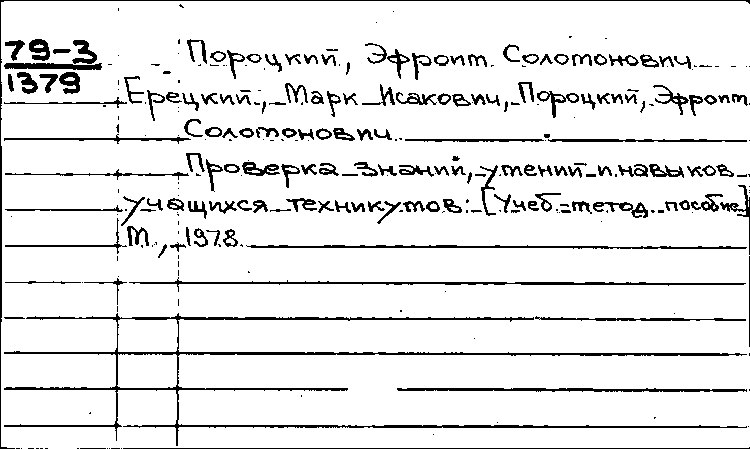 79-3
1379
Пороцкий, Эфроим Соломонович
Ерецкий, Марк Исакович, Пороцкий, Эфроим
Соломонович
Проверка знаний, умений и навыков
учащихся техникумов: [Учеб.-метод. пособие]
М., 1978